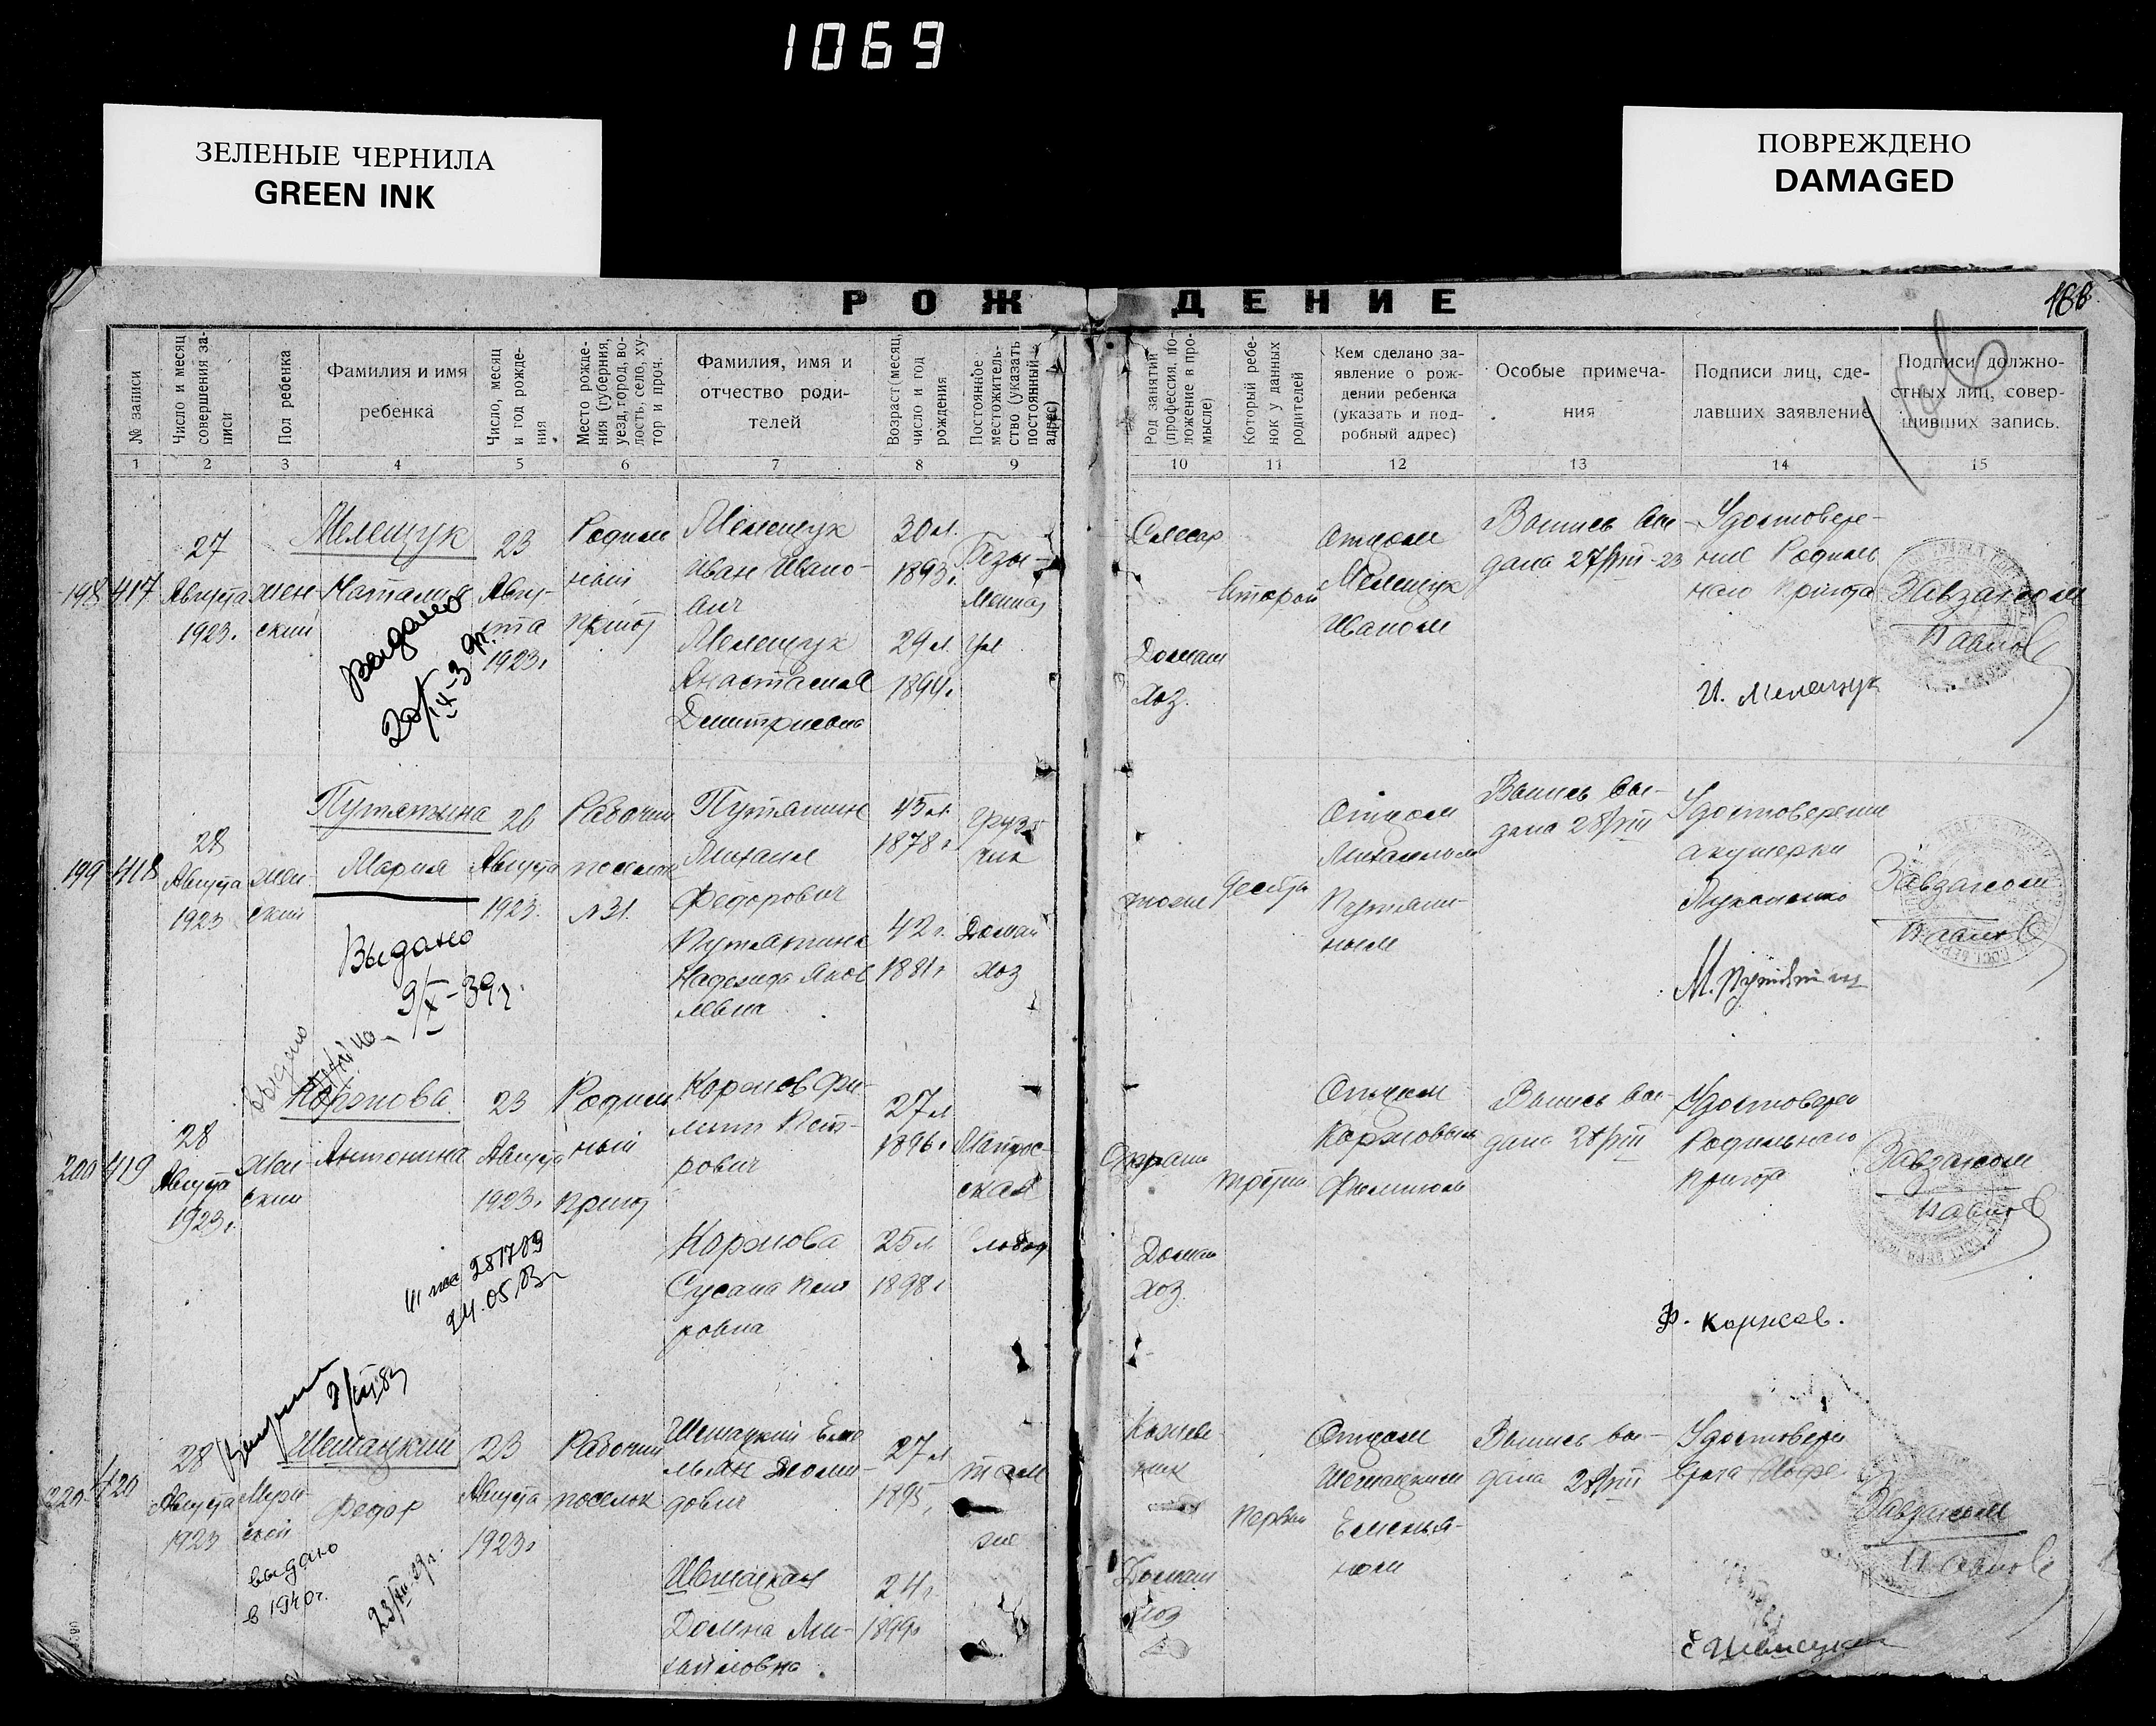 1069
ЗЕЛЕНЫЕ ЧЕРНИЛА
GREEN INK
ПОВРЕЖДЕНО
DAMAGED
РОЖДЕНИЕ
186
№ записи
Число и месяц
совершения за-
писи
Пол ребенка
Фамилия и имя
ребенка
Число, месяц
и год рожде-
ния
Место рожде-
ния (губерния,
уезд, город, во-
лость, село, ху-
тор и проч.
Фамилия, имя и
отчество роди-
телей
Возраст (месяц,
число и год
рождения
Постоянное
местожитель-
ство (указать
постоянный
адрес)
Род занятий
(профессия, по-
ложение в про-
мысле)
Который ребе-
нок у данных
родителей
Кем сделано за-
явление о рож-
дении ребенка
(указать и под-
робный адрес)
Особые примеча-
ния
Подписи лиц, сде-
лавших заявление
Подписи должно-
стных лиц, совер-
шивших запись.
1 2 3 4 5 6 7 8 9 10 11 12 13 14 15
198 417
27
Августа
1923.
жен
ский
Мелещук
Наталия
выдано
23
Авгу-
ста
1923г
Родиль
ный
приют
Мелещук
Иван Ивано-
вич
Мелещук
Анастасия
Дмитриевна
30 л.
1893г.
29 л.
1894г
Безы-
менная
ул
Слесар
Домаш
хоз.
Второй
Отцом
Мелещук
Иваном
Выпись вы-
дана 27/VIII-23
Удостовере-
ние Родиль
ного приюта
И. Мелещук
Завзагсом
Павлов
199 418
28
Августа
1923
жен-
ский
Путятина
Мария
Выдано
9/X-39г.
26
Августа
1923.
Рабочий
поселок
№31.
Путятин
Михаил
Федорович
Путятина
Надежда Яков
левна
45 л.
1878г
42г.
1881г
Домаш
хоз
Отцом
Михаилом
Путяти-
ным
Выпись вы-
дана 28/VIII
Удостоверение
акушерки
М. Путятин
Завзагсом
Павлов
200 419
28
Августа
1923г.
Жен
ский
выдано
Коржова
Антонина
23
Августа
1923г
Родиль
ный
приют
281709
24.05.83г
Коржов Фи-
липп Пет-
рович
Коржова
Сусана Пет
ровна
27 л
1896г
25 л.
1898г
Матрос-
ская
слобод
Домаш
хоз.
третий
Отцом
Коржовым
Филиппом
Выпись вы-
дана 28/VIII
Удостоверен
Родильного
приюта
Ф. Коржов.
Завзагсом
Павлов
220 420
28
Августа
1923
Муж
ской
выдано
в 1940г.
Шешацкий
Федор
23
Августа
1923г
Рабочий
поселок
27 л
1895г
24г.
1899г
там
же
Домна Ми-
хайловна.
Кожев
ник
Домаш
хоз
первый
Отцом
Емелья-
ном
Выпись вы-
дана 28/VIII
Удостоверен
врача
Завзагсом
Павлов